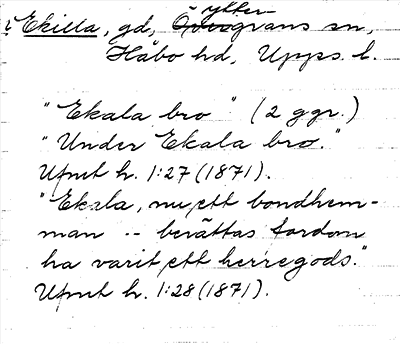 Ekilla, gd, Ytter-
grans sn,
Håbo hd, Upps. l.
"Ekala bro" (2 ggr.)
"Under Ekala bro."
Ufmt h. 1:27 (1871).
"Ekala, nu ett bondhem-
man -- berättas fordom
ha varit ett herregods."
Ufmt h. 1:28 (1871).